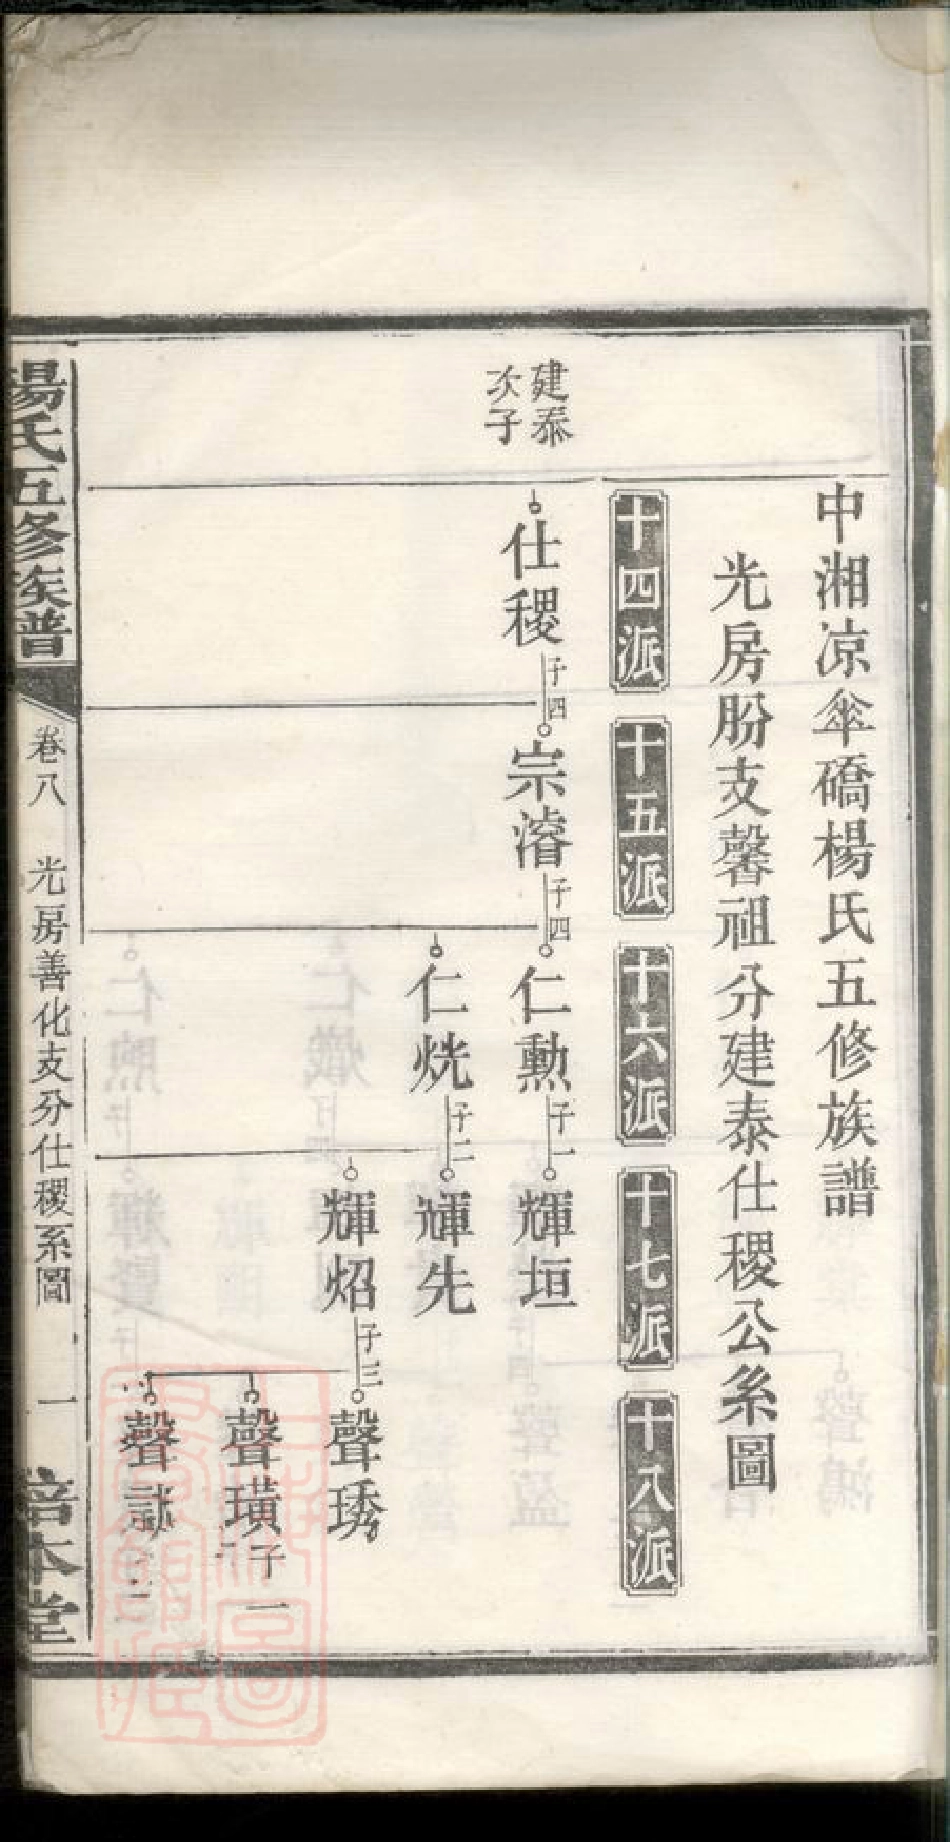 中湘凉傘礄楊氏五修族譜
光房股支馨祖分建泰仕稷公系圖
十四派
十五派
十六派
十七派
十八派
建泰
次子
仕稷
子四
宗濬
子四
仁勲
子一
輝垣
仁烍
子二
輝先
輝炤
子三
聲琇
聲璜
子一
聲
楊氏五修族譜
卷八
光房善化支分仕稷系圖
一
培本堂